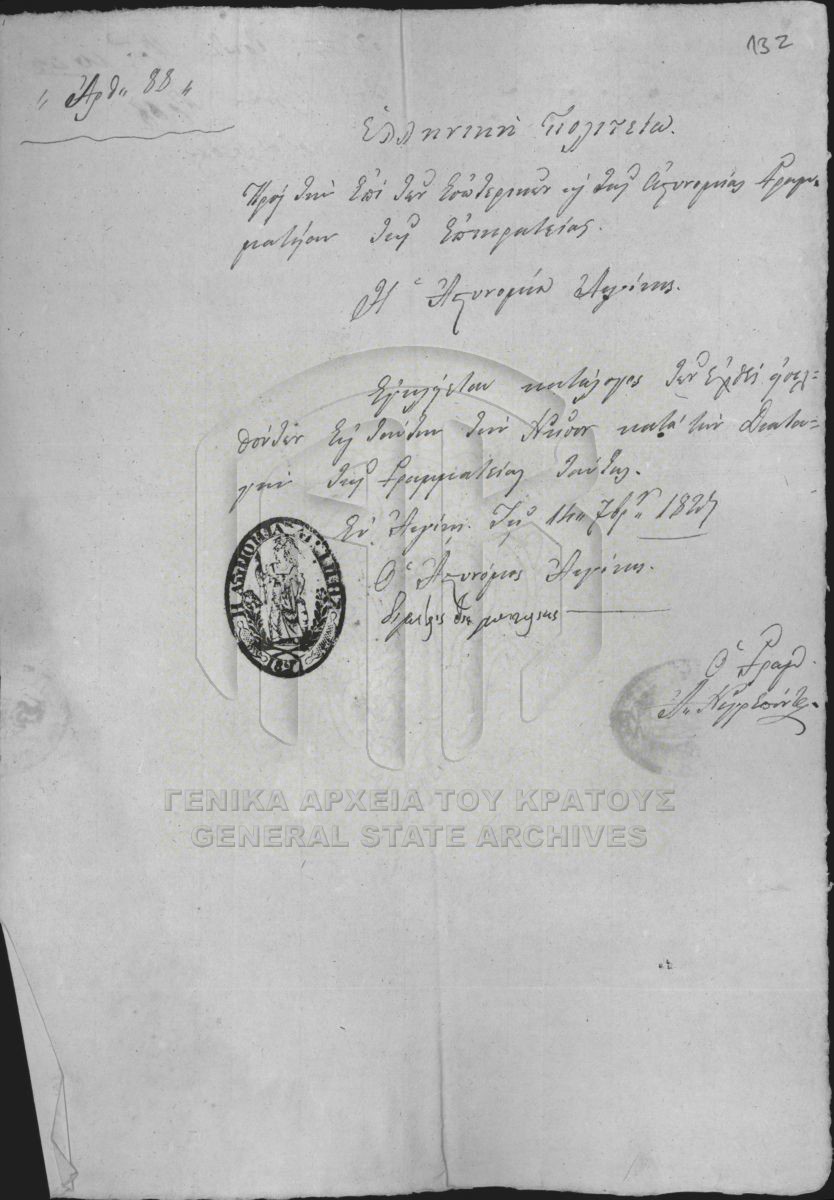 132
„ Ἀρθ" 88 „
Ἑλληνικὴ Πολιτεία.
Πρὸς τὴν Ἐπὶ τῶν Ἐσωτερικῶν καὶ τῆς Ἀστυνομίας Γραμ-
ματείαν τῆς Ἐπικρατείας.
Ἡ Ἀστυνομία Αἰγίνης.
Ἐγκλείεται κατάλογος τῶν
εἰς ταύτην τὴν Νῆσον κατὰ τὴν Διατα-
γὴν τῆς Γραμματείας ταύτης.
Ἐν Αἰγίνῃ τῇ 14" 7βρ" 1827
Ὁ Ἀστυνόμος Αἰγίνης.
Ὁ Γραμ.
Η ΑΣΤΥΝΟΜΙΑ ΑΙΓΙΝΗΣ
ΓΕΝΙΚΑ ΑΡΧΕΙΑ ΤΟΥ ΚΡΑΤΟΥΣ
GENERAL STATE ARCHIVES